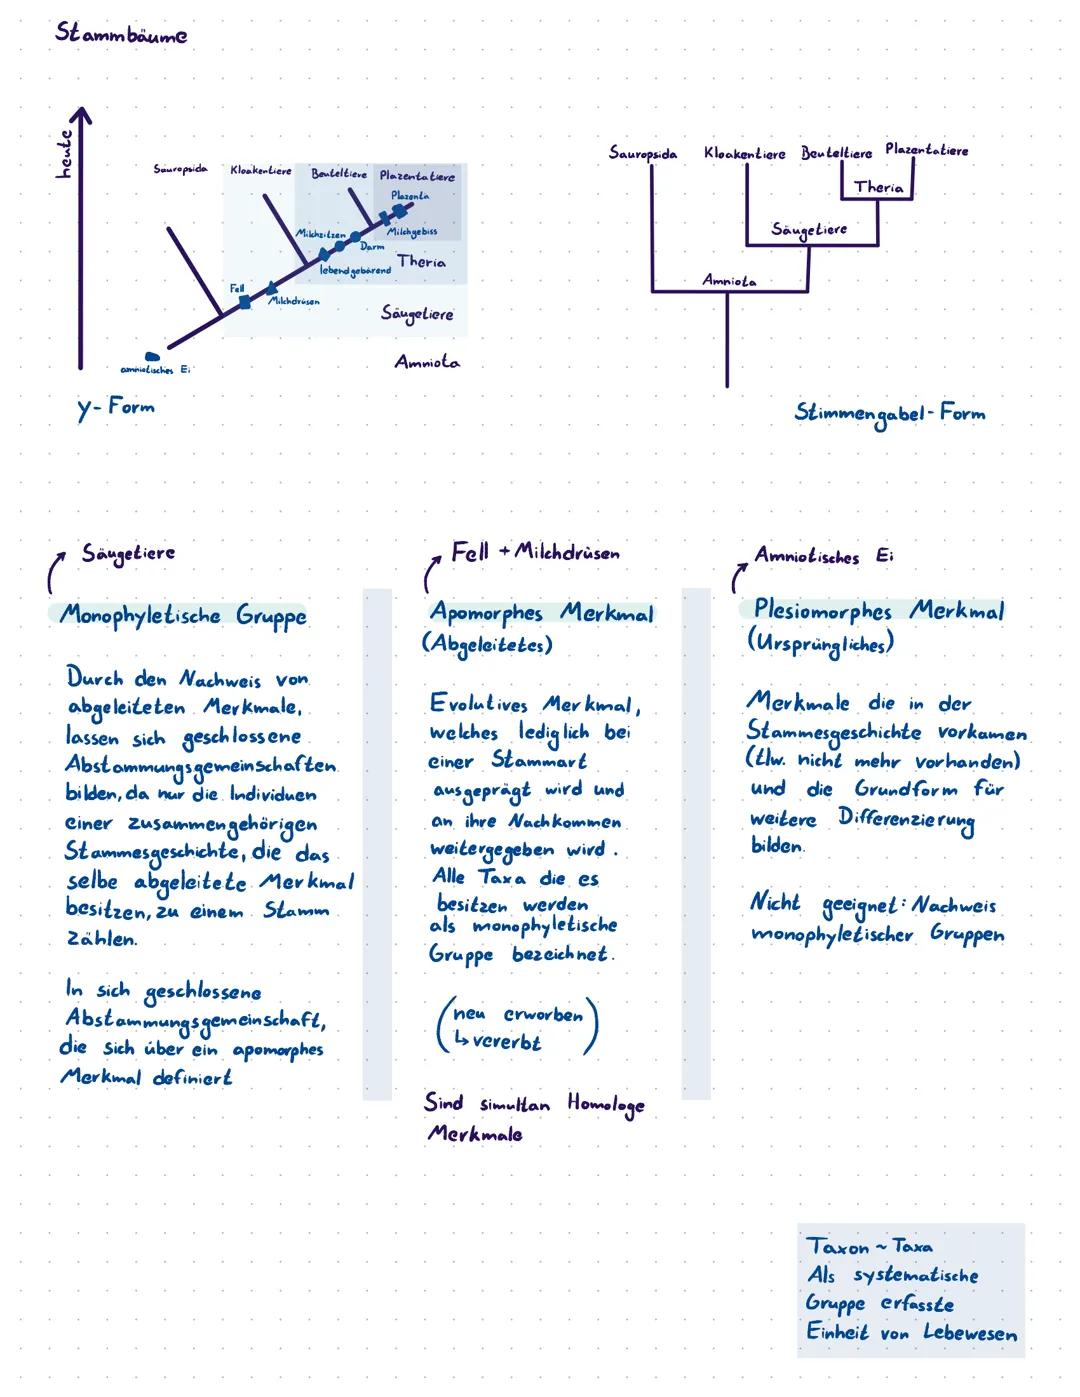 Stammbäume
heute
Sauropsida
Kloakentiere
Beuteltiere
Plazentatiere
Plazenta
Milchgebiss
Milchzitzen
Darm
lebendgebärend
Theria
Fell
Milchdrüsen
Säugetiere
Amniota
amniotisches Ei
y-Form
Sauropsida
Kloakentiere
Beuteltiere
Plazentatiere
Theria
Säugetiere
Amniota
Stimmengabel-Form
Säugetiere
Monophyletische Gruppe
Durch den Nachweis von
abgeleiteten Merkmale,
lassen sich geschlossene
Abstammungsgemeinschaften
bilden, da nur die Individuen
einer zusammengehörigen
Stammesgeschichte, die das
selbe abgeleitete Merkmal
besitzen, zu einem Stamm
zählen.
In sich geschlossene
Abstammungsgemeinschaft,
die sich über ein apomorphes
Merkmal definiert
Fell + Milchdrüsen
Apomorphes Merkmal
(Abgeleitetes)
Evolutives Merkmal,
welches lediglich bei
einer Stammart
ausgeprägt wird und
an ihre Nachkommen
weitergegeben wird.
Alle Taxa die es
besitzen werden
als monophyletische
Gruppe bezeichnet.
(neu erworben
↳ vererbt)
Sind simultan Homologe
Merkmale
Amniotisches Ei
Plesiomorphes Merkmal
(Ursprüngliches)
Merkmale die in der
Stammesgeschichte vorkamen
(tlw. nicht mehr vorhanden)
und die Grundform für
weitere Differenzierung
bilden.
Nicht geeignet: Nachweis
monophyletischer Gruppen
Taxon ~ Taxa
Als systematische
Gruppe erfasste
Einheit von Lebewesen